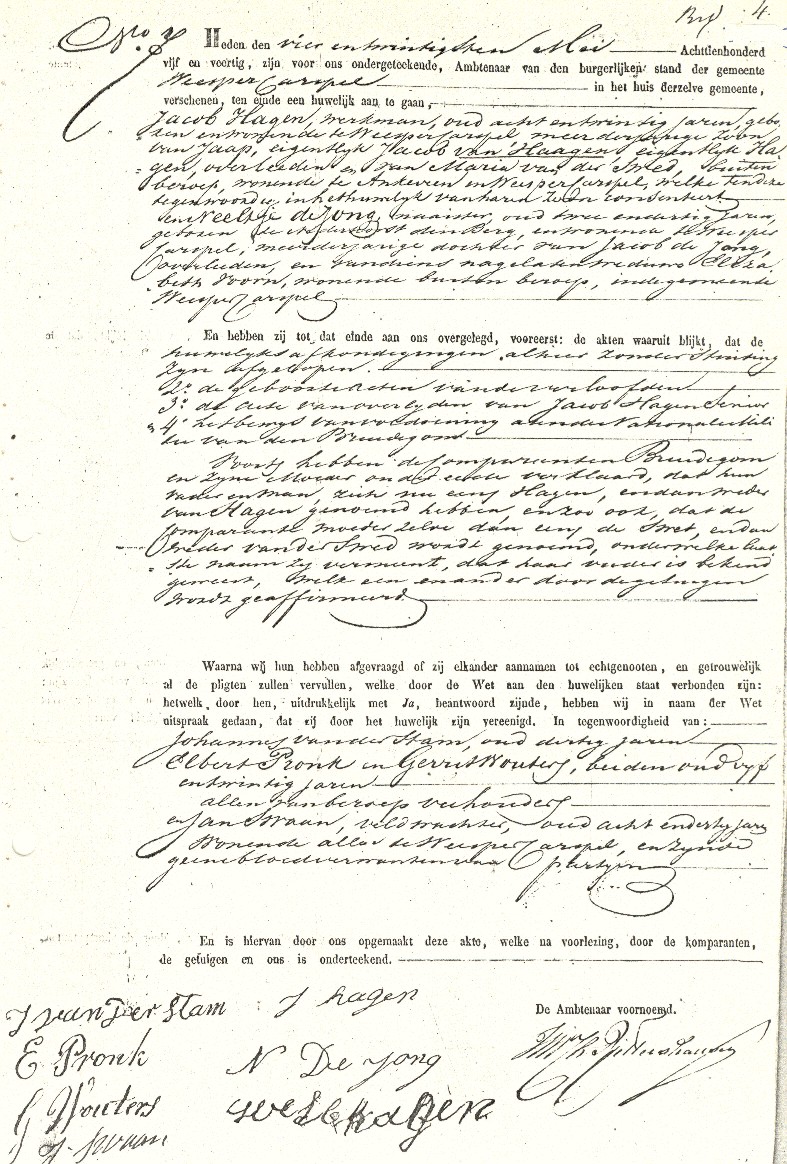 4.
No 7
Heden den vier en twintigsten Mei Achttienhonderd
vijf en veertig, zijn voor ons ondergeteekende, Ambtenaar van den burgerlijken stand der gemeente
Weesper Carspel in het huis derzelve gemeente,
verschenen, ten einde een huwelijk aan te gaan,
Jacob Hagen, werkman, oud acht en twintig jaren, gebo-
ren en wonende te Weesper Carspel meerderjarige zoon
van Jaap, eigentlyk Jacob van Haagen, eigentlyk Ha-
gen, overleeden en van Maria van der Swed, buiten
beroep, wonende te Ankeveen in Weesper Carspel, welke ten deze
tegenwoordig, in het huwlyk van haren Zoon consenteert
en Neeltje de Jong, naaister, oud twee en dertig jaren,
geboren te den Berg, en wonende te Weesper
Carspel, meerderjarige dochter van Jacob de Jong,
overleden, en van diens nagelaten weduwe Eliza-
beth Voorn, wonende buiten beroep, in de gemeente
Weesper Carspel
En hebben zij tot dat einde aan ons overgelegd, vooreerst: de akten waaruit blijkt, dat de
huwelyks afkondigingen alhier zonder stuiting
zyn afgelopen.
2o de geboorteacten van de verloofden
3o de acte van overlyden van Jacob Hagen Senior
4o het bewys van voldoening aan de Nationale Mili-
tie van den Bruidegom
Voorts hebben de Comparanten Bruidegom
en zyne Moeder onder eede verklaard, dat hun
vader en man, zich nu eens Hagen, en dan weder
van Hagen genoemd hebben, en zoo ook, dat de
Comparante moeder zelve dan eens de Swet, en dan
weder van der Swed wordt genoemd, onder welke laat-
ste naam zy vermeent, dat haar vader is bekend
geweest, welk een en ander door de getuigen
wordt geaffirmeerd.
Waarna wij hun hebben afgevraagd of zij elkander aannamen tot echtgenooten, en getrouwelijk
al de pligten zullen vervullen, welke door de Wet aan den huwelijken staat verbonden zijn:
hetwelk door hen, uitdrukkelijk met Ja, beantwoord zijnde, hebben wij in naam der Wet
uitspraak gedaan, dat zij door het huwelijk zijn vereenigd. In tegenwoordigheid van:
Johannes van der Stam, oud dertig jaren
Elbert Pronk en Gerrit Wouters, beiden oud vyf
en twintig jaren
allen van beroep veehouders
en Jan Swaan, veldwachter, oud acht en dertig jaren
Wonende allen te Weesper Carspel, en zynde
geene bloedverwanten van partyen
En is hiervan door ons opgemaakt deze akte, welke na voorlezing, door de komparanten,
de getuigen en ons is onderteekend.
De Ambtenaar voornoemd.
J van Der Stam J hagen
E Pronk N De Jong
G Wouters
J. Swaan